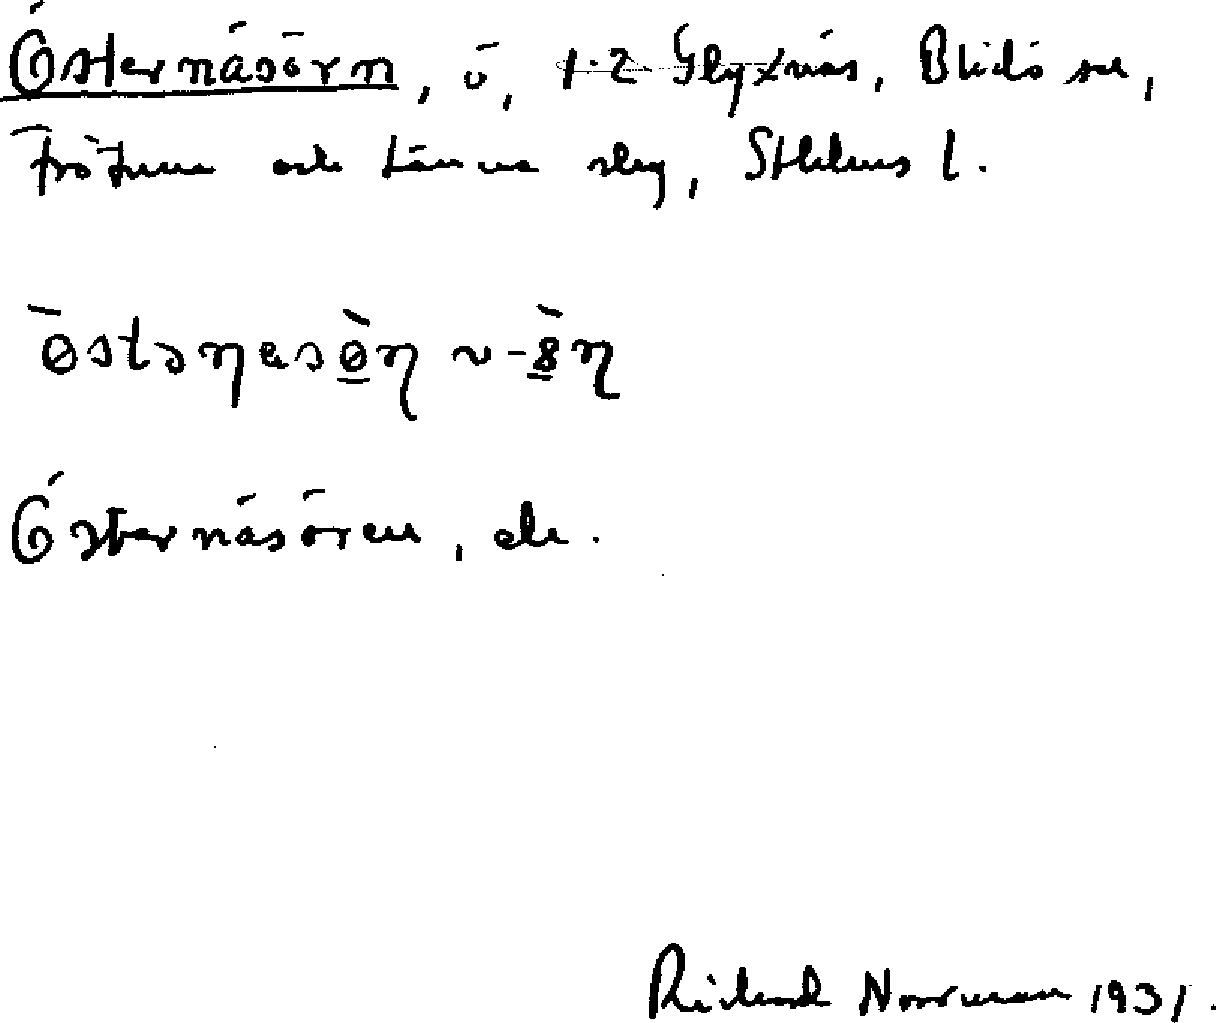 Östernäsörn, ö, 1-2 Glyxnäs, Blidö sn,
Frötuna och Länna slg, Sthlms l.
östəηasöη ~ -8η
Östernäsören, ds.
Rickard Norrman 1931.